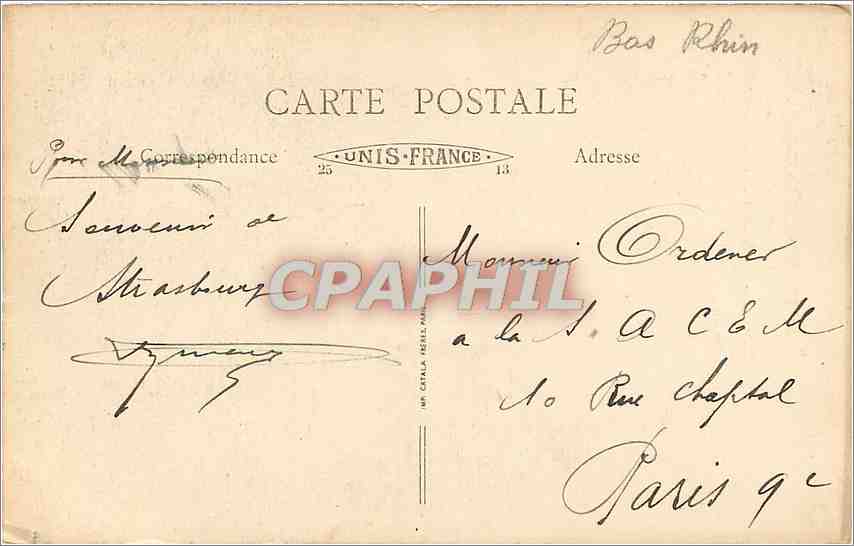 Bas Rhin
CARTE POSTALE
Correspondance
UNIS-FRANCE
25 13
Adresse
Souvenir de
Strasbourg
CPAPHIL
IMP. CATALA FRÈRES, PARIS
Monsieur Ordener
a la S. A C E M
10 Rue Chaptal
Paris 9e